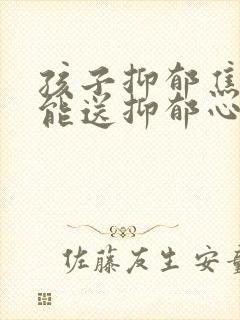 孩子抑郁焦
能送抑郁心
佐藤友生 安